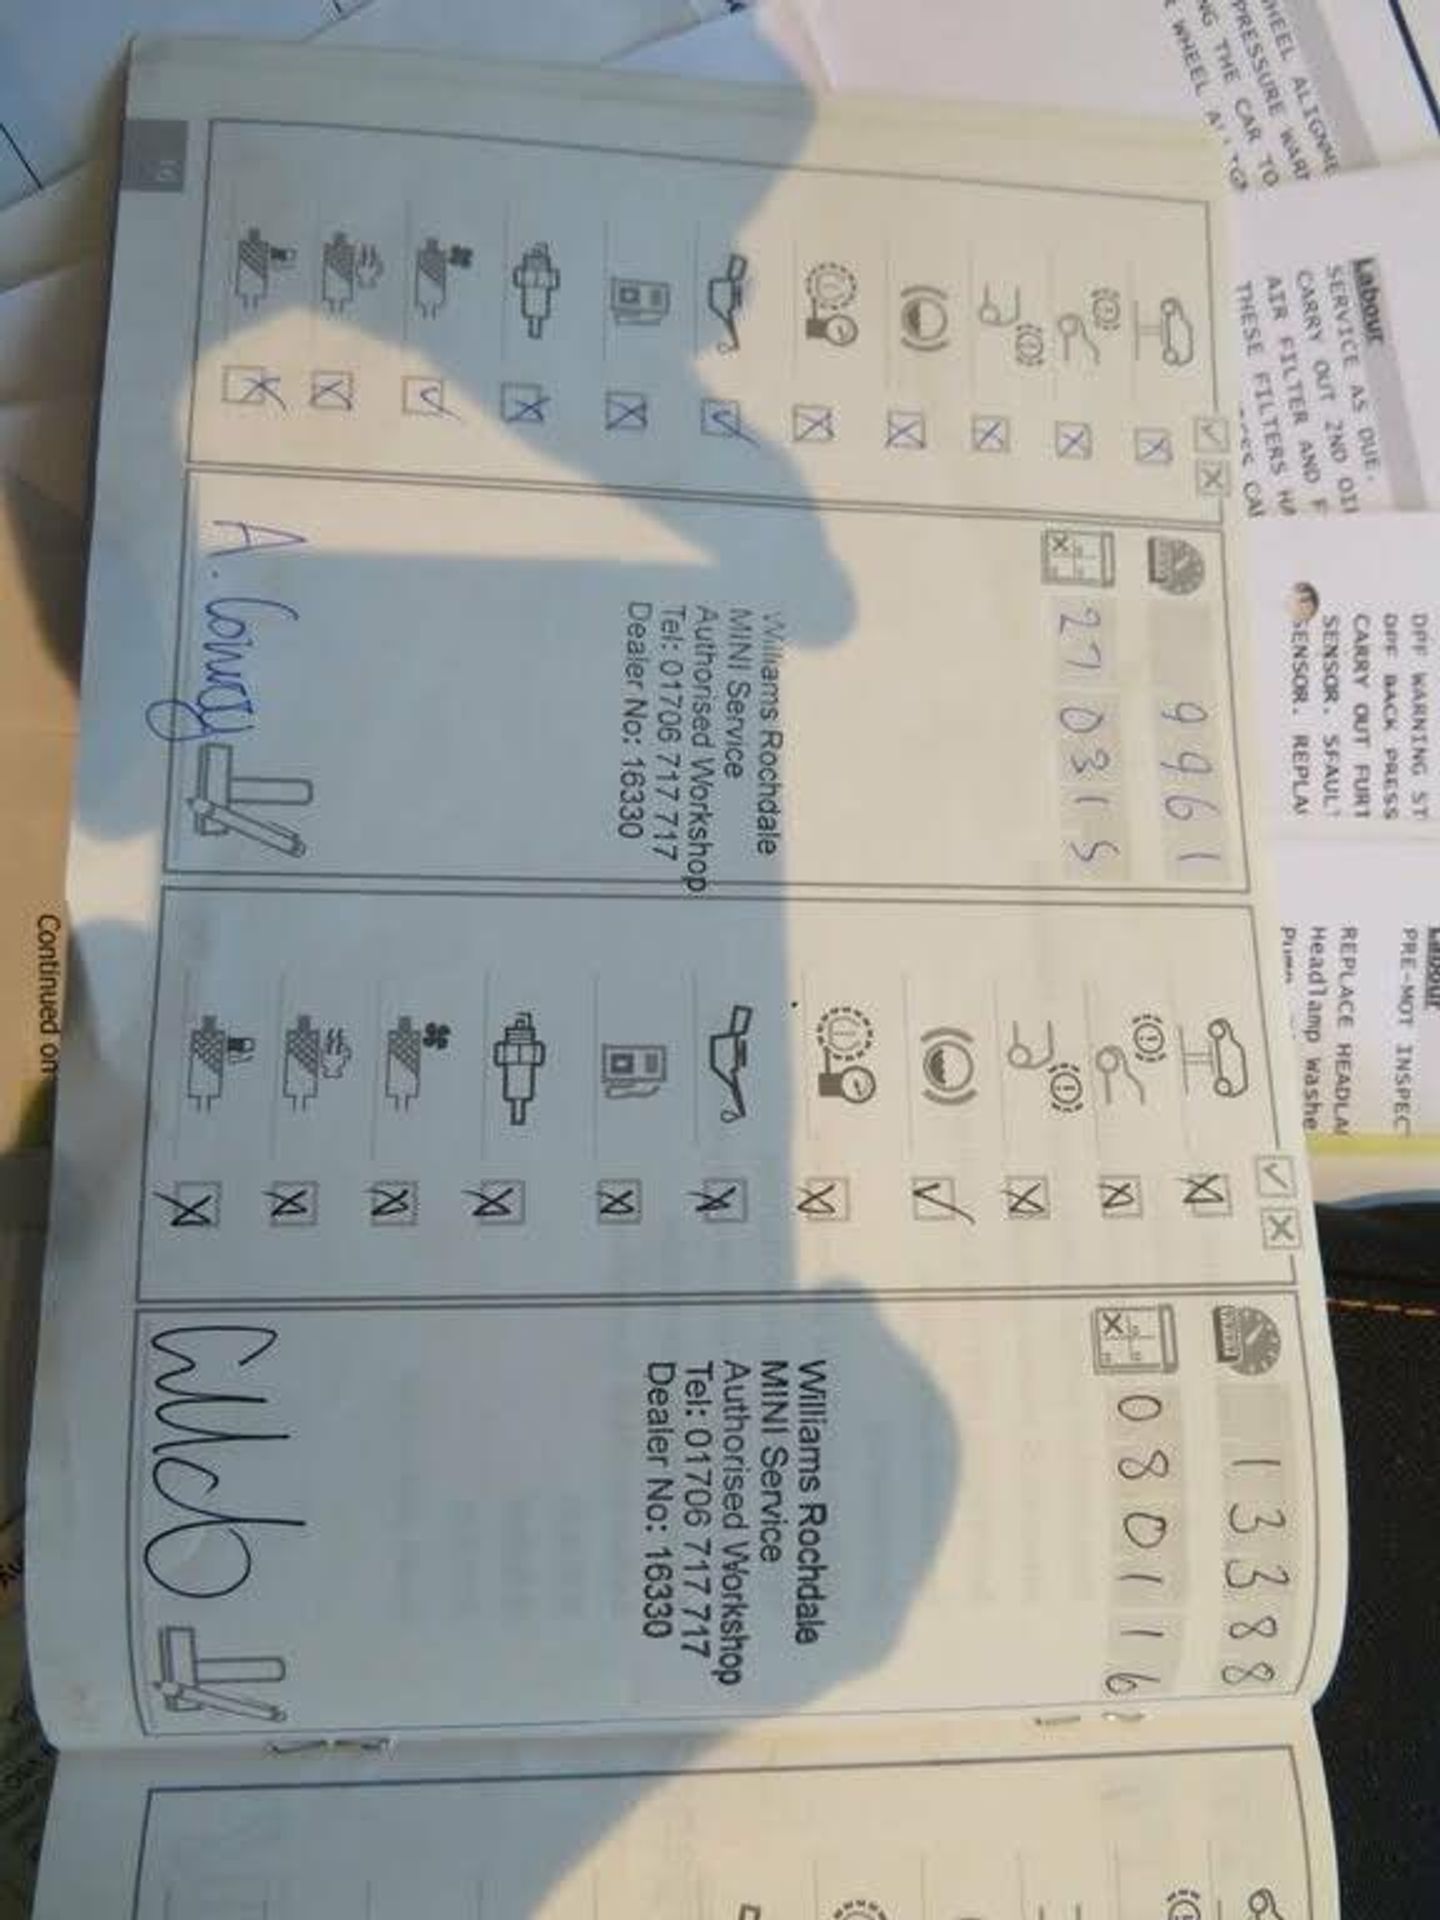 9961
270315
Williams Rochdale
MINI Service
Authorised Workshop
Tel: 01706 717 717
Dealer No: 16330
A. Conway
13388
080116
Williams Rochdale
MINI Service
Authorised Workshop
Tel: 01706 717 717
Dealer No: 16330
Continued on
WHEEL ALIGNME
PRESSURE WAR
NG THE CAR TO
WHEEL
Labour
SERVICE AS DUE.
CARRY OUT 2ND OI
AIR FILTER AND F
THESE FILTERS HA
DPF WARNING ST
DPF BACK PRESS
CARRY OUT FURT
SENSOR. SFAULT
SENSOR. REPLA
Labour
PRE-MOT INSPEC
REPLACE HEADLA
Headlamp Washe